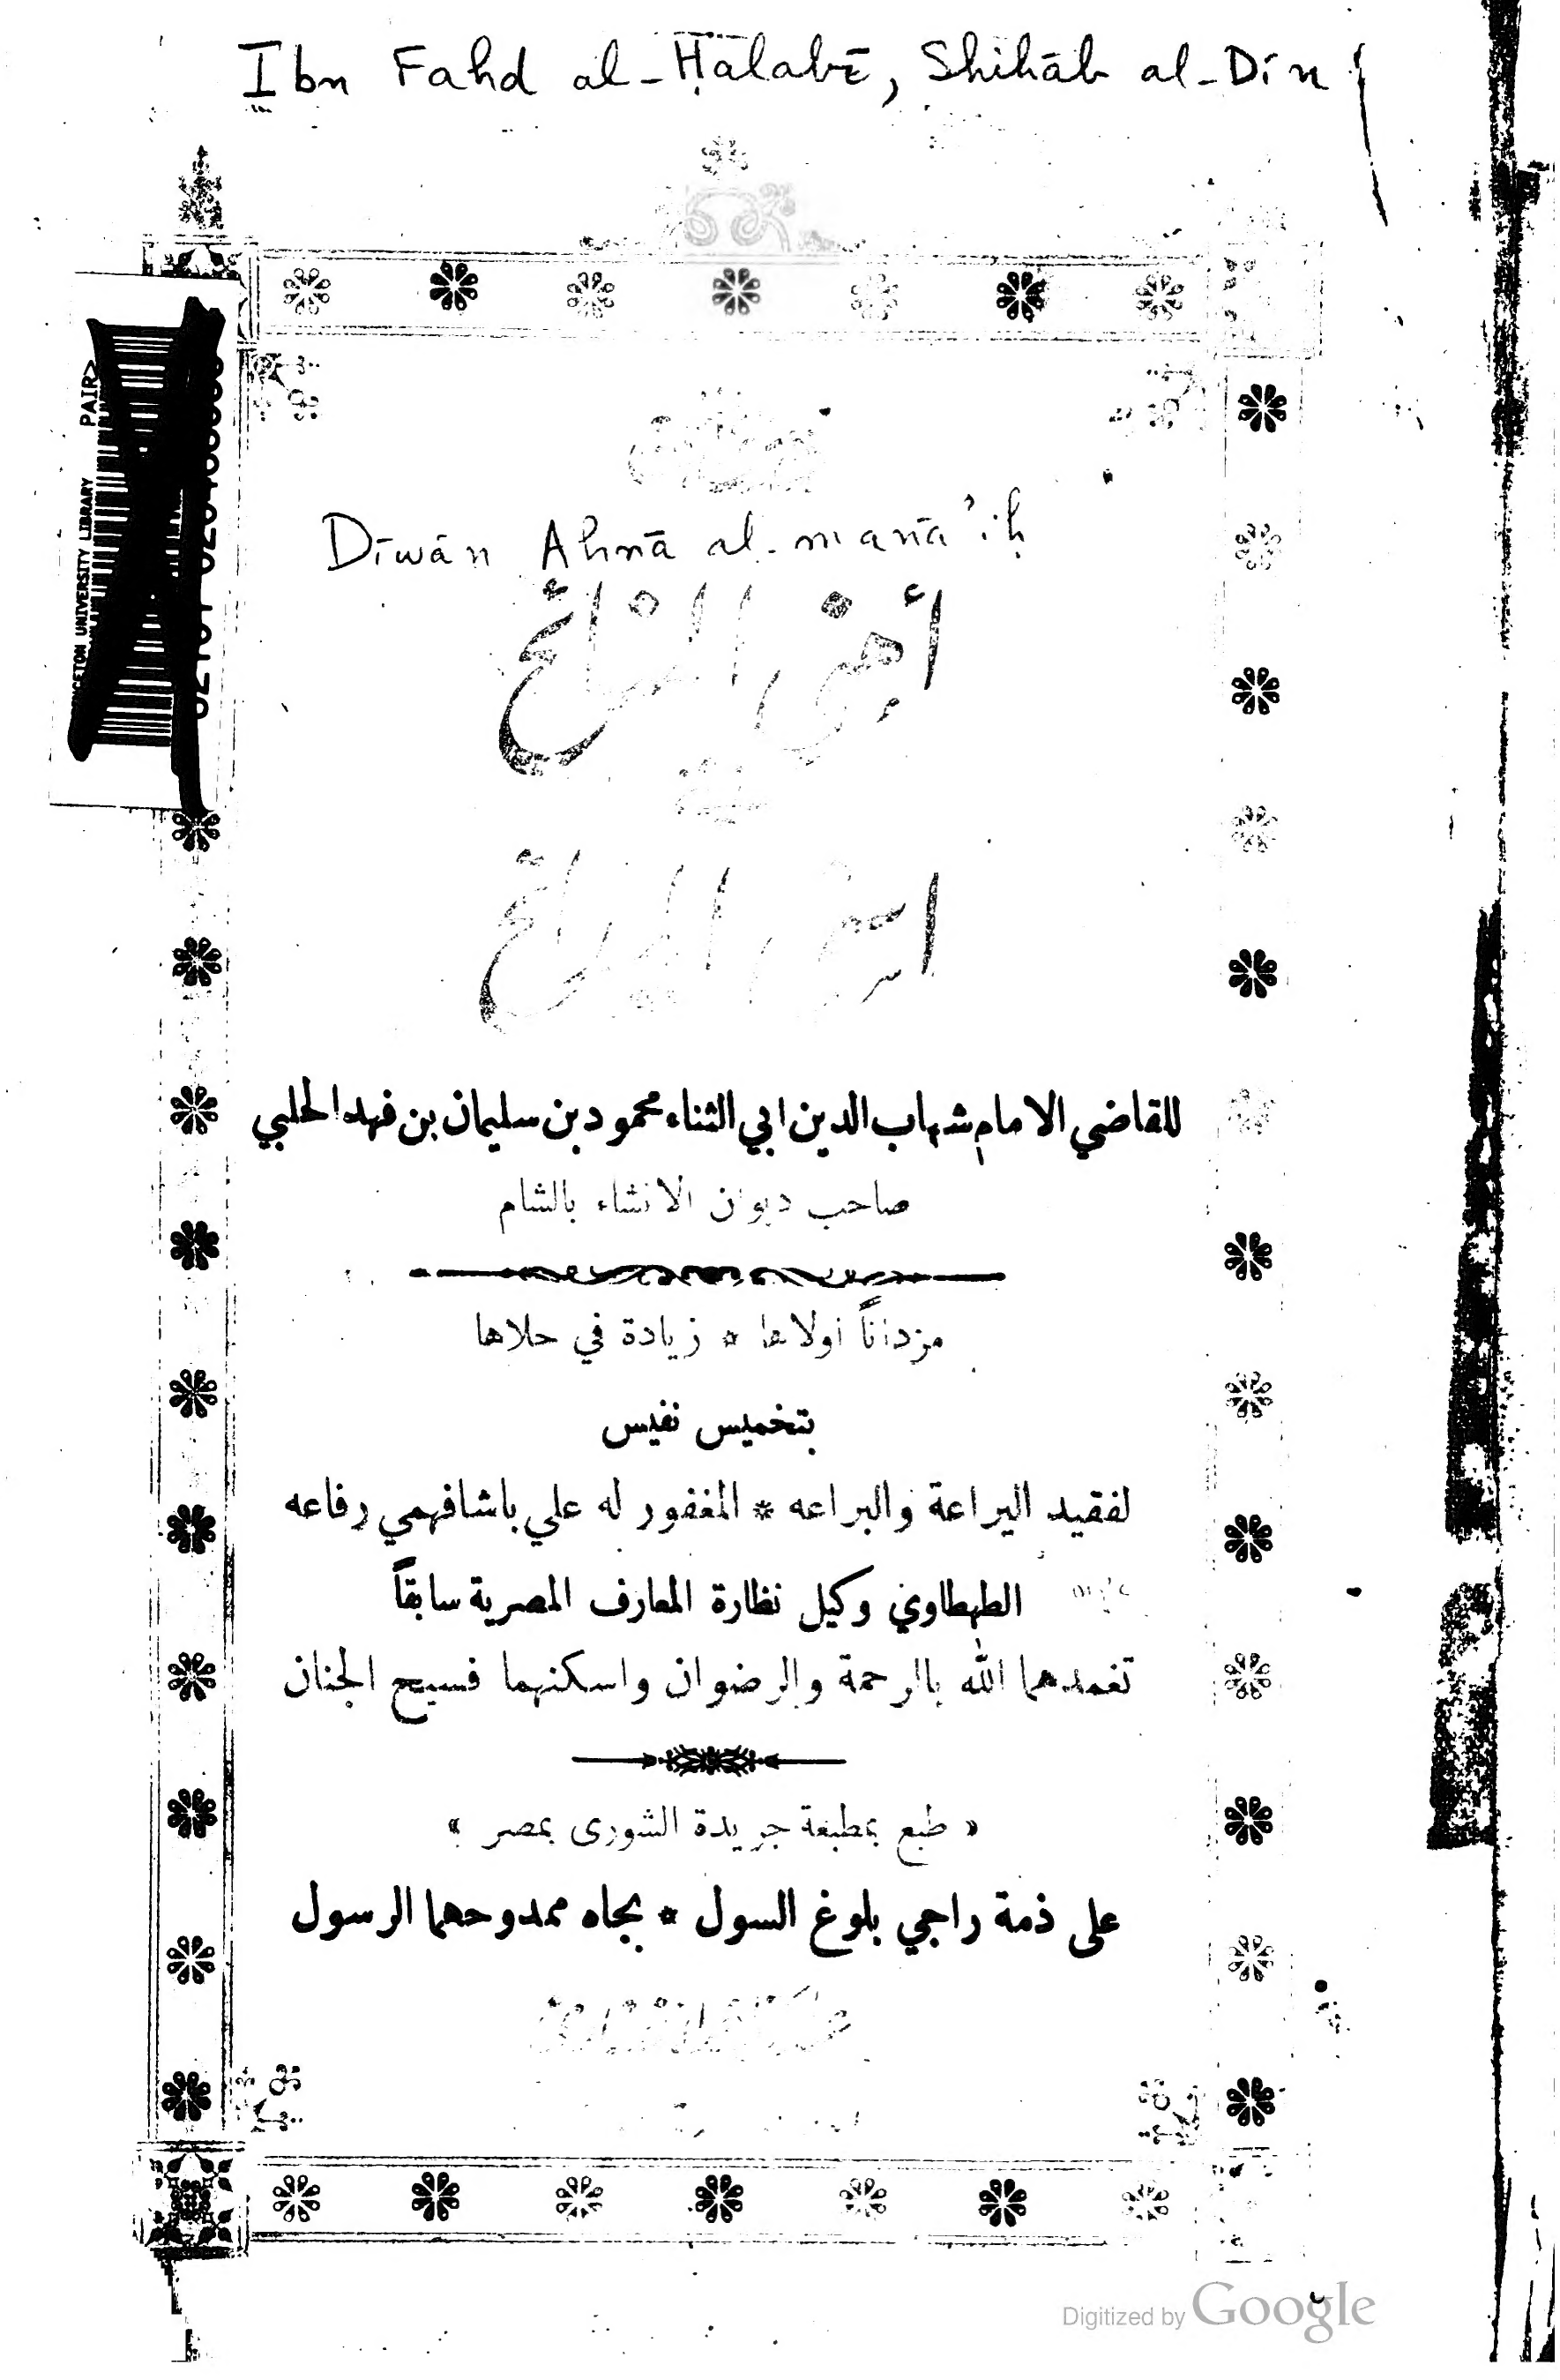 Ibn Fahd al-Ḥalabī, Shihāb al-Dīn
PRINCETON UNIVERSITY LIBRARY PAIR>
Dīwān Ahnā al-manā'iḥ
أهنى المنائح
اسنى المدائح
للقاضي الامام شهاب الدين ابي الثناء محمود بن سليمان بن فهد الحلبي
صاحب ديوان الانشاء بالشام
مزداناً أولاها * زيادة في حلاها
بتخميس نفيس
لفقيد اليراعة والبراعه * المغفور له علي باشا فهمي رفاعه
الطهطاوي وكيل نظارة المعارف المصرية سابقاً
تغمدهما الله بالرحمة والرضوان واسكنهما فسيح الجنان
« طبع بمطبعة جريدة الشورى بمصر »
على ذمة راجي بلوغ السول * بجاه ممدوحهما الرسول
Digitized by Google